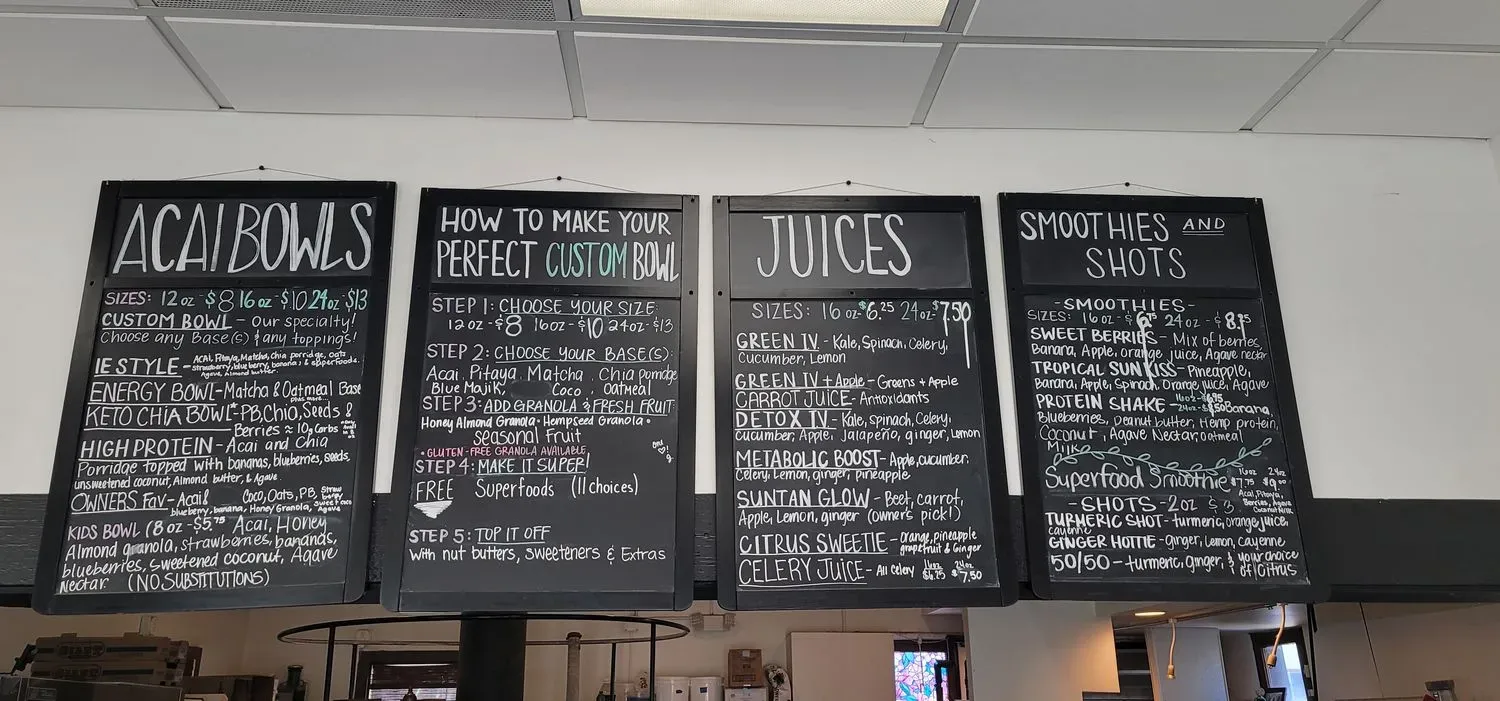 ACAI BOWLS
SIZES: 12 oz - $8 16 oz - $10 24 oz - $13
CUSTOM BOWL - Our specialty!
Choose any Base(s) & any toppings!
IE STYLE - Acai, Pitaya, Matcha, chia porridge, oats
strawberry, blueberry, banana, & superfoods.
Agave, Almond butter.
ENERGY BOWL - Matcha & Oatmeal Base
KETO CHIA BOWL - PB, Chia, Seeds &
Berries ≈ 10g Carbs
HIGH PROTEIN - Acai and Chia
Porridge topped with bananas, blueberries, seeds,
unsweetened coconut, Almond butter, & Agave.
OWNERS FAV - Acai & Coco, Oats, PB, Straw
berry
blueberry, banana, Honey Granola, sweet coco
Agave
KIDS BOWL (8 oz - $5.75 Acai, Honey
Almond granola, strawberries, bananas,
blueberries, sweetened coconut, Agave
Nectar (NO SUBSTITUTIONS)
HOW TO MAKE YOUR
PERFECT CUSTOM BOWL
STEP 1: CHOOSE YOUR SIZE:
12 oz - $8 16oz - $10 24oz - $13
STEP 2: CHOOSE YOUR BASE(S):
Acai, Pitaya, Matcha, Chia porridge
Blue Majik, Coco, oatmeal
STEP 3: ADD GRANOLA & FRESH FRUIT:
Honey Almond Granola • Hempseed Granola •
Seasonal Fruit
• GLUTEN-FREE GRANOLA AVAILABLE
STEP 4: MAKE IT SUPER!
FREE Superfoods (11 choices)
STEP 5: TOP IT OFF
With nut butters, sweeteners & Extras
JUICES
SIZES: 16 oz - $6.25 24 oz - $7.50
GREEN IV - Kale, Spinach, Celery,
Cucumber, Lemon
GREEN IV + Apple - Greens + Apple
CARROT JUICE - Antioxidants
DETOX IV - Kale, spinach, Celery,
cucumber, Apple, Jalapeño, ginger, Lemon
METABOLIC BOOST - Apple, cucumber,
Celery, Lemon, ginger, pineapple
SUNTAN GLOW - Beet, carrot,
Apple, Lemon, ginger (owner's pick!)
CITRUS SWEETIE - orange, pineapple
grapefruit & Ginger
CELERY JUICE - All Celery 16oz $6.25 24oz $7.50
SMOOTHIES AND
SHOTS
- SMOOTHIES -
SIZES: 16 oz - $6.75 24 oz - $8.25
SWEET BERRIES - Mix of berries,
Banana, Apple, orange juice, Agave nectar
TROPICAL SUNKISS - Pineapple,
Banana, Apple, Spinach, Orange juice, Agave
PROTEIN SHAKE - 16oz - $6.95
24oz - $8.50 Banana,
Blueberries, Peanut butter, Hemp protein,
Coconut, Agave Nectar, oatmeal
Milk
Superfood Smoothie 16oz $7.75 24oz $9.00
Acai, Pitaya,
Berries, Agave
Coconut Milk
- SHOTS - 2 oz $3
TURMERIC SHOT - turmeric, orange juice,
cayenne
GINGER HOTTIE - ginger, Lemon, cayenne
50/50 - turmeric, ginger, & your choice
of Citrus